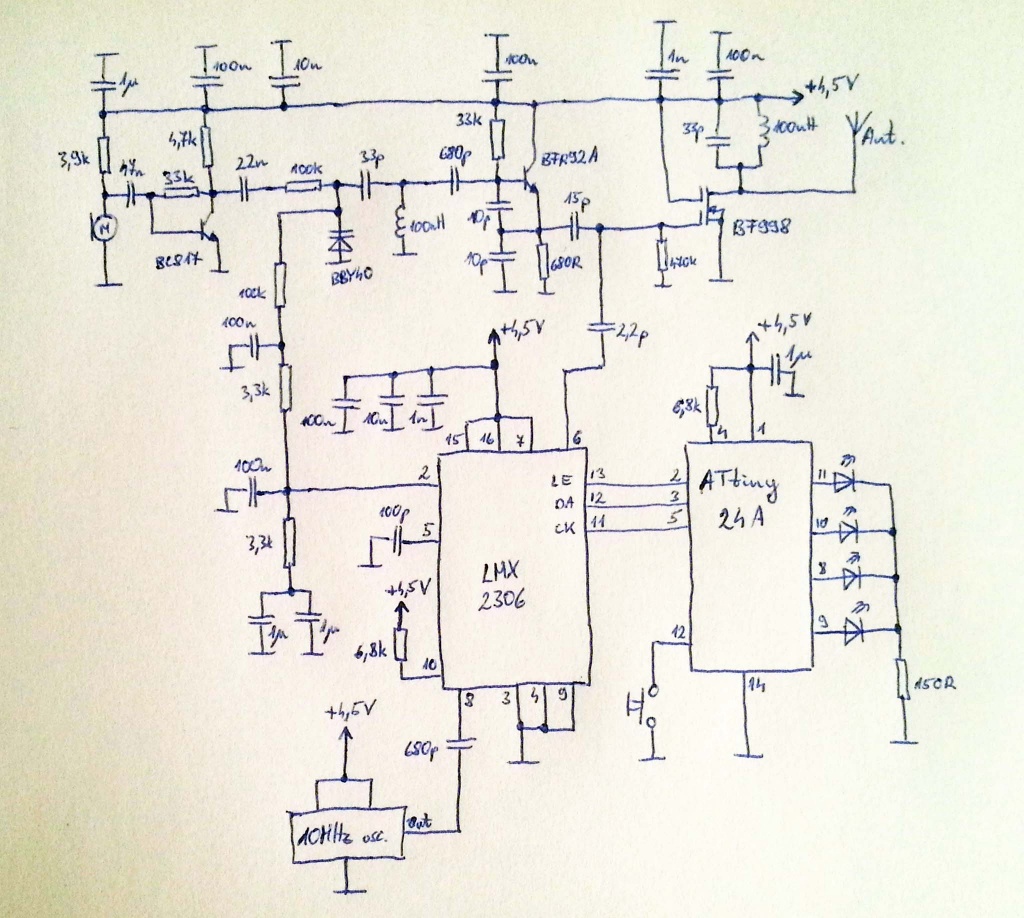 1µ
100n
10n
100n
1n
100n
+4,5V
3,9k
47n
33k
4,7k
22n
100k
33p
680p
33k
BFR92A
33p
100nH
Ant.
M
BC817
BBY40
100nH
10p
10p
15p
680R
470k
BF998
100k
100n
3,3k
+4,5V
2,2p
+4,5V
1µ
100n
10n
1n
6,8k
15
16
7
6
4
1
100n
2
LE
13
2
ATtiny
24A
11
DA
12
3
CK
11
5
10
100p
5
3,3k
LMX
2306
8
+4,5V
1µ
1µ
6,8k
10
12
9
8
3
4
9
14
150R
+4,5V
680p
10MHz osc.
out